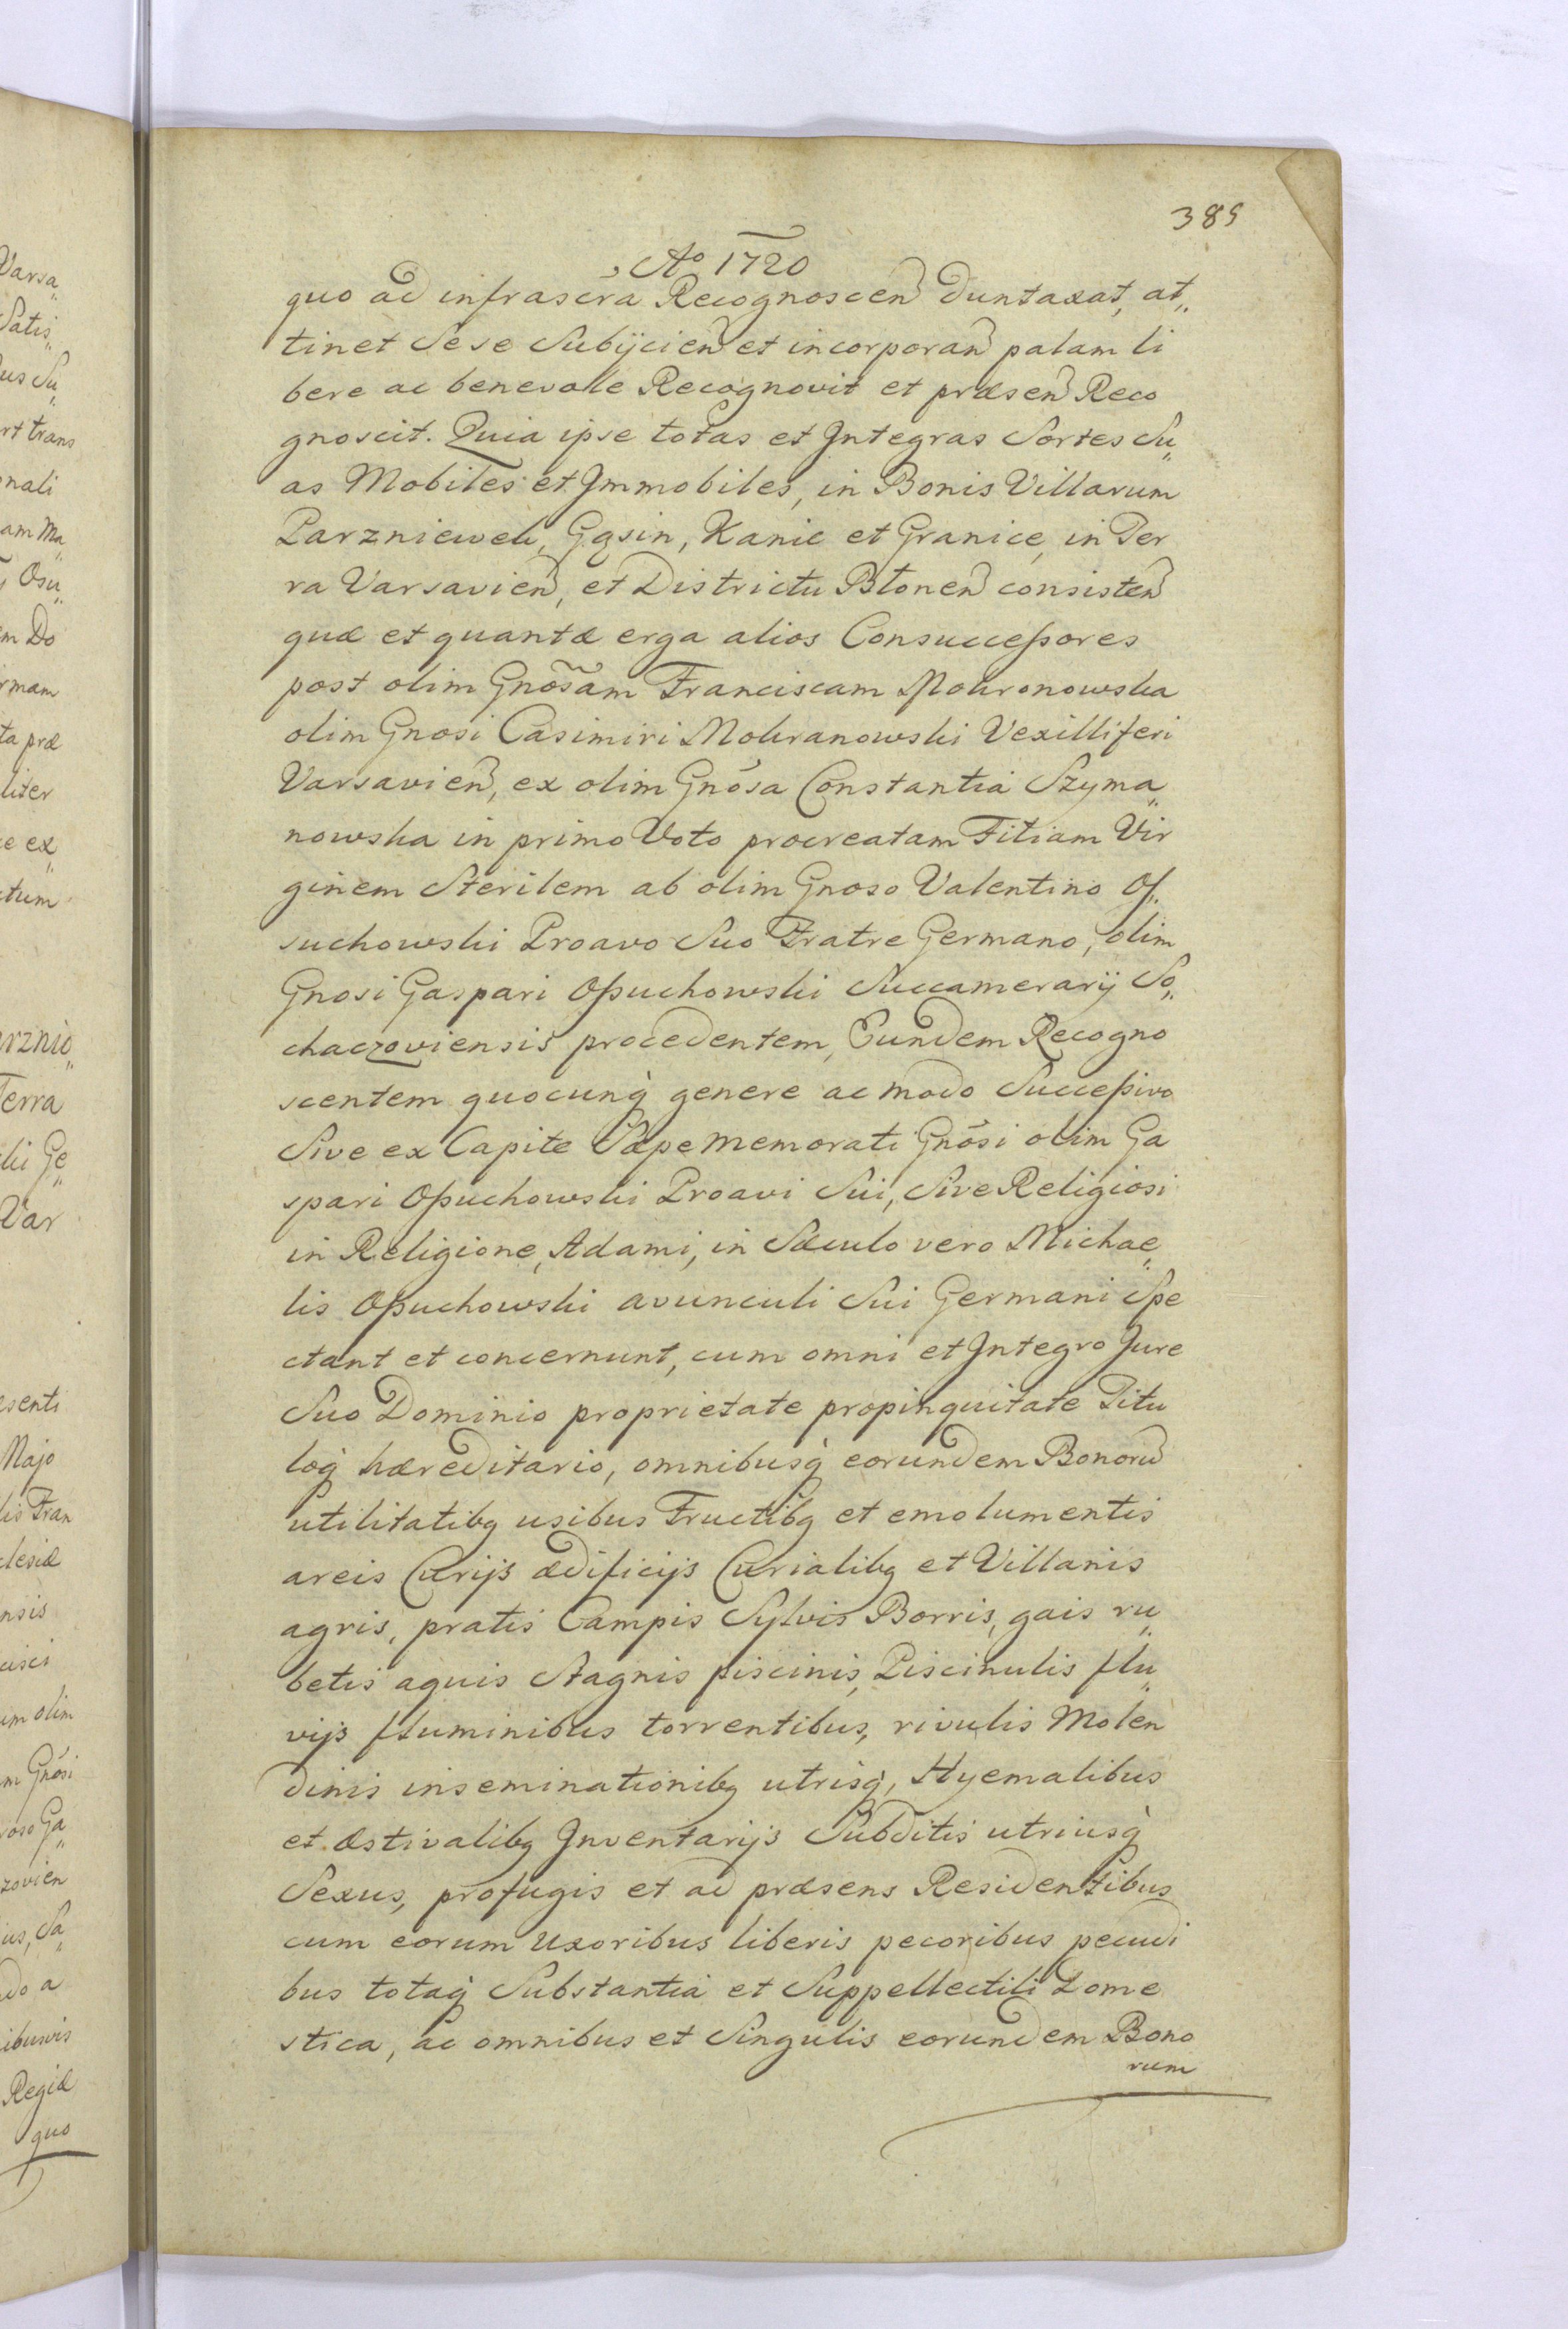 389
Ao 1720
quo ad infrascra Recognoscen duntaxat, at„
tinet Sese Subijcien et incorporan palam li
bere ac benevole Recognovit et præsen Reco
gnoscit. Quia ipse totas et Integras Sortes Su„
as Mobiles et Immobiles, in Bonis Villarum
Parzniewek, Gąsin, Kanie et Granice, in Ter
ra Varsavien, et Districtu Błonen consisten
quæ et quantæ erga alios Consuccessores
post olim Gnosam Franciscam Mokronowska
olim Gnosi Casimiri Mokranowski Vexilliferi
Varsavien, ex olim Gnosa Constantia Szyma„
nowska in primo Voto procreatam Filiam Vir
ginem Sterilem ab olim Gnoso Valentino Os„
suchowski Proavo Suo Fratre Germano, olim
Gnosi Gaspari Ossuchowski Succamerarij So„
chaczoviensis procedentem, Eundem Recogno
scentem quocunq genere ac modo Successivo
Sive ex Capite Sæpe memorati Gnosi olim Ga
spari Ossuchowski Proavi Sui, Sive Religiosi
in Religione, Adami, in Sæculo vero Michae„
lis Ossuchowski avunculi Sui Germani Spe
ctant et concernunt, cum omni et Integro Jure
Suo Dominio proprietate propinquitate Titu
loq hæreditario, omnibusq eorundem Bonoru
utilitatibq usibus Fructibq et emolumentis
areis Curijs ædificijs Curialibq et Villanis
agris, pratis Campis Sylvis Borris, gais ru„
betis aquis Stagnis piscinis, Piscinulis flu„
vijs fluminibus torrentibus, rivulis Molen
dinis inseminationibq utrisq, Hyemalibus
et æstivalibq Inventarijs Subditis utriusq
Sexus, profugis et ad præsens Residentibus
cum eorum uxoribus liberis pecoribus pecudi
bus totaq Substantia et Suppellectili Dome
stica, ac omnibus et Singulis eorundem Bono
rum